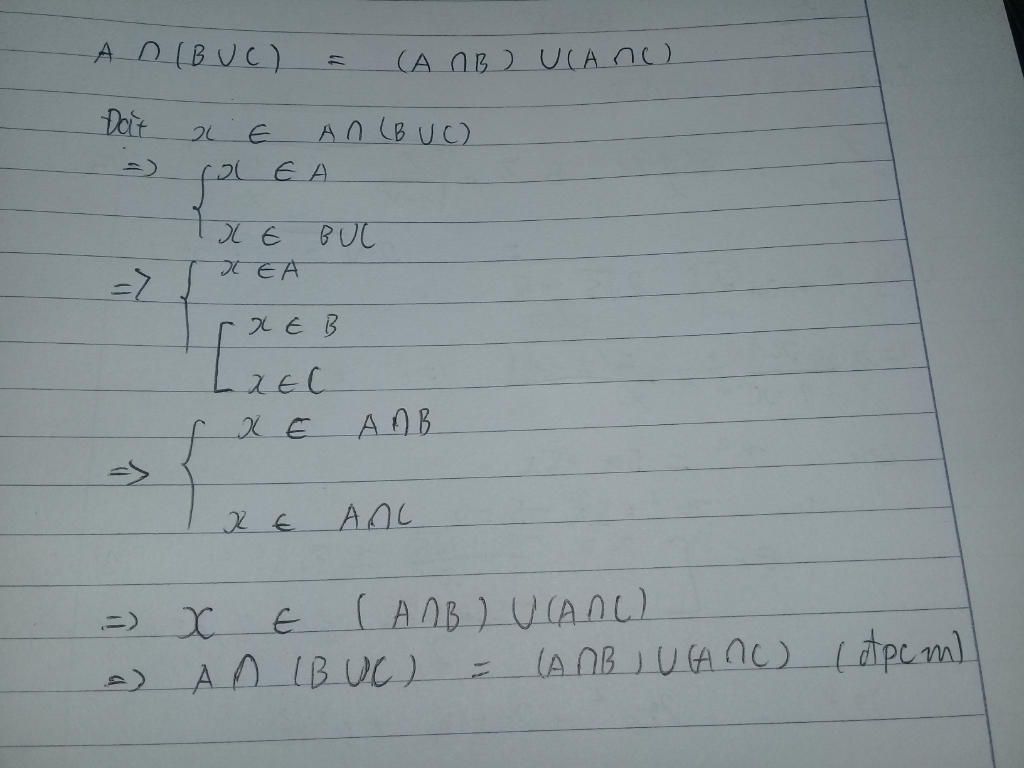 A ∩ (B ∪ C) = (A ∩ B) ∪ (A ∩ C)
Đặt x ∈ A ∩ (B ∪ C)
=> { x ∈ A
x ∈ B ∪ C
=> { x ∈ A
[ x ∈ B
x ∈ C
=> { x ∈ A ∩ B
x ∈ A ∩ C
=> x ∈ (A ∩ B) ∪ (A ∩ C)
=> A ∩ (B ∪ C) = (A ∩ B) ∪ (A ∩ C) (đpcm)